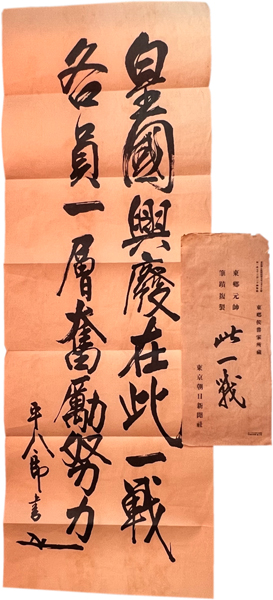 皇國興廢在此一戰
各員一層奮勵努力
平八郎書
東郷侯爵家所藏
東郷元帥
筆蹟複製
此一戰
東京朝日新聞社